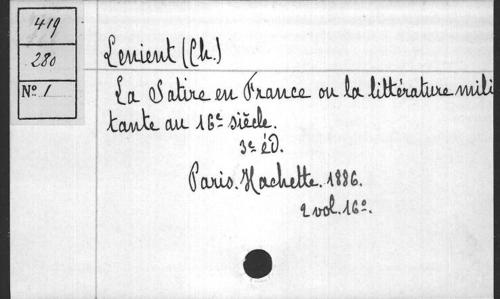 419
280
Nº 1
Lenient (Ch.)
La Satire en France ou la littérature mili
tante au 16e siècle.
3e éd.
Paris. Hachette. 1886.
2 vol. 16º.